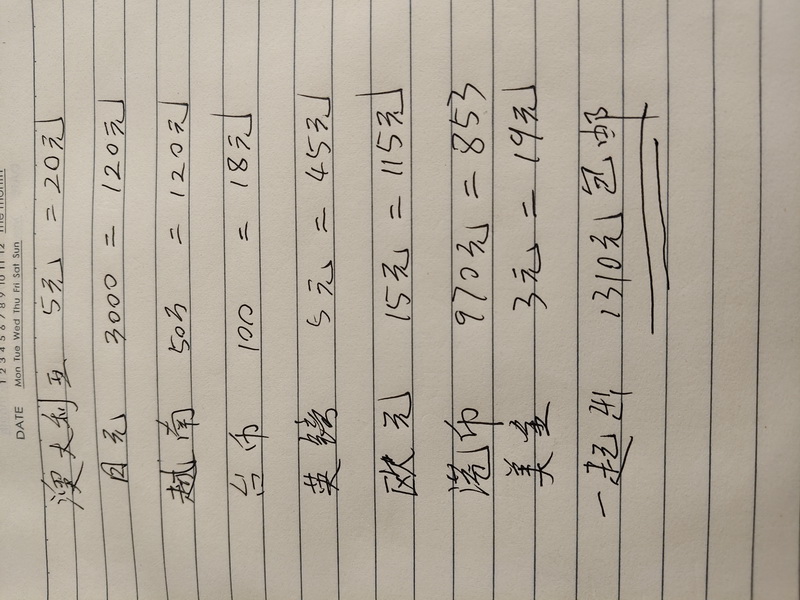 1 2 3 4 5 6 7 8 9 10 11 12 The month
DATE Mon Tue Wed Thu Fri Sat Sun
澳大利亚 5元 = 20元
日元 3000 = 120元
越南 50万 = 120元
台币 100 = 18元
英镑 5元 = 45元
欧元 15元 = 115元
港币 970元 = 853
美金 3元 = 19元
一起出 1310元包邮